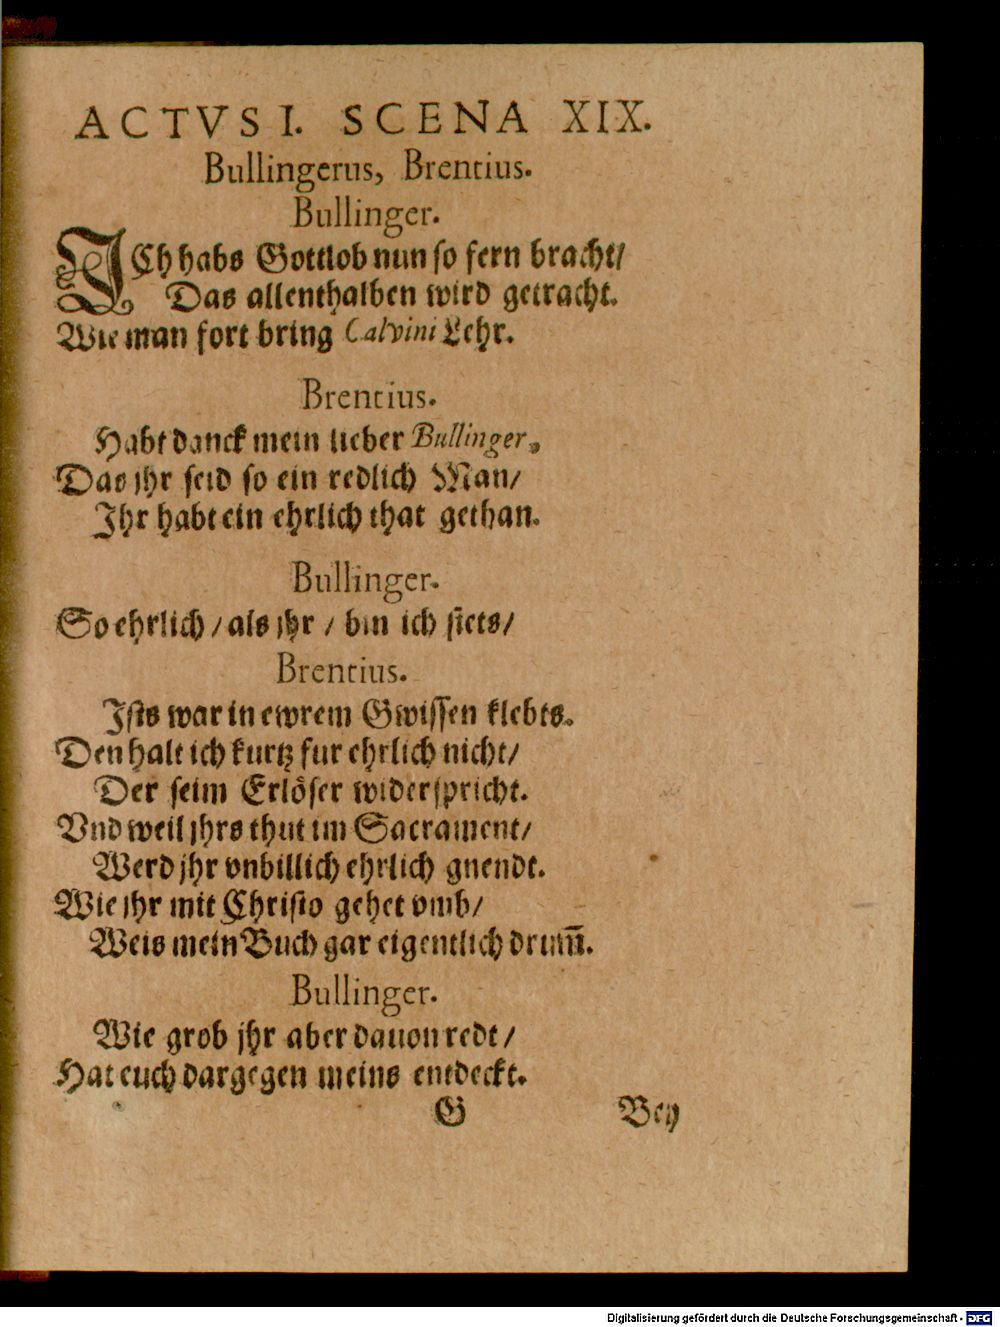 ACTVS I. SCENA XIX.
Bullingerus, Brentius.
Bullinger.
ICh habs Gottlob nun so fern bracht/
Das allenthalben wird getracht.
Wie man fort bring Calvini Lehr.
Brentius.
Habt danck mein lieber Bullinger,
Das jhr seid so ein redlich Man/
Ihr habt ein ehrlich that gethan.
Bullinger.
So ehrlich / als jhr / bin ich stets/
Brentius.
Ists war in ewrem Gwissen klebts.
Den halt ich kurtz fur ehrlich nicht/
Der seim Erlöser widerspricht.
Vnd weil jhrs thut im Sacrament/
Werd jhr vnbillich ehrlich gnendt.
Wie jhr mit Christo gehet vmb/
Weis mein Buch gar eigentlich drum̄.
Bullinger.
Wie grob jhr aber dauon redt/
Hat euch dargegen meins entdeckt.
G Bey
Digitalisierung gefördert durch die Deutsche Forschungsgemeinschaft - DFG